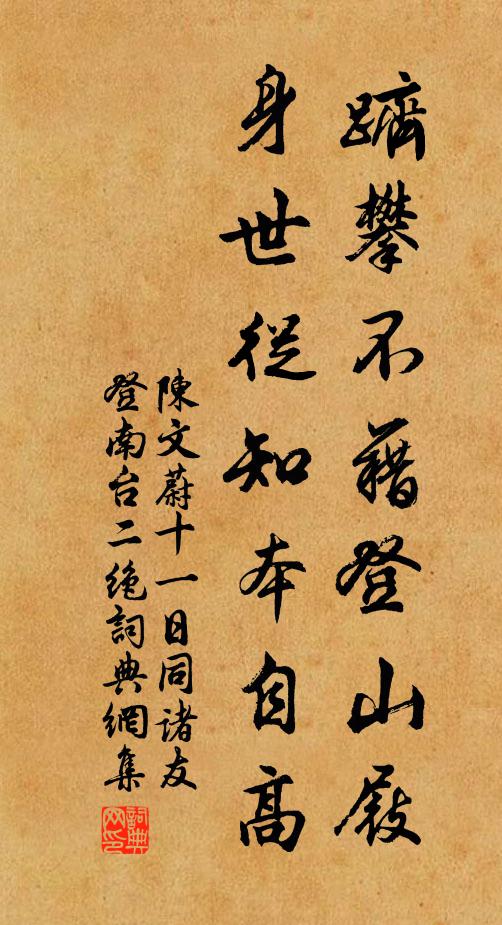 躋攀不藉登山屐
身世從知本自高
陳文蔚十一日同諸友
登南台二絶詞典網集
詞典
网印